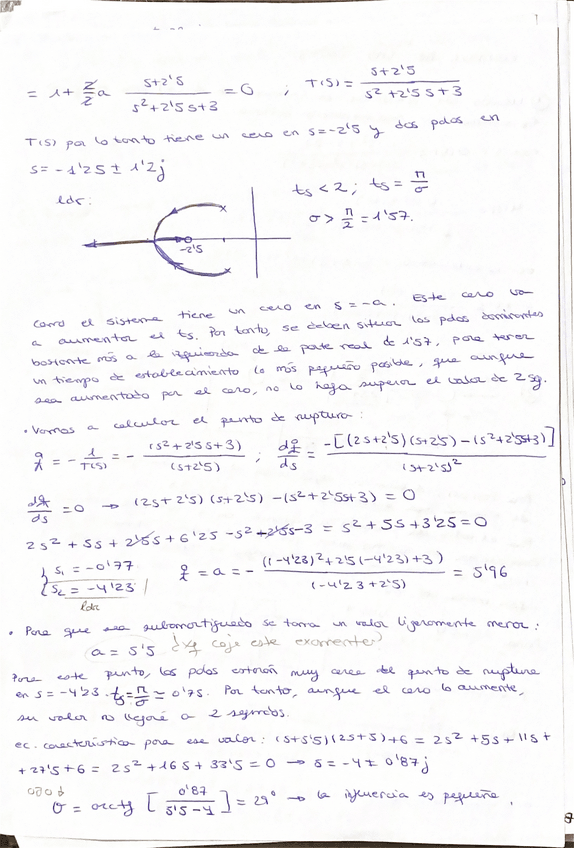 = 1 + 2/2 a (s+2'5)/(s²+2'5s+3) = 0 ; T(s) = (s+2'5)/(s²+2'5s+3)
T(s) por lo tanto tiene un cero en s=-2'5 y dos polos en
s = -1'25 ± 1'2j
ldr:
ts < 2 ; ts = π/σ
σ > π/2 = 1'57.
-2'5
Como el sistema tiene un cero en s = -a. Este cero va
a aumentar el ts. Por tanto, se deben situar los polos dominantes
bastante más a la izquierda de la parte real de 1'57, para tener
un tiempo de establecimiento lo más pequeño posible, que aunque
sea aumentado por el cero, no lo haga superar el valor de 2 sg.
• Vamos a calcular el punto de ruptura:
= - 1/T(s) = - (s²+2'5s+3)/(s+2'5) ; = -[(2s+2'5)(s+2'5)-(s²+2'5s+3)]/(s+2'5)²
=0 → (2s+2'5)(s+2'5)-(s²+2'5s+3) = 0
2s² + 5s + 2'5s + 6'25 - s² - 2'5s - 3 = s² + 5s + 3'25 = 0
s₁ = -0'77
s₂ = -4'23
ldr
= a = - ((-4'23)²+2'5(-4'23)+3)/(-4'23+2'5) = 5'96
• Para que sea subamortiguado se toma un valor ligeramente menor:
a = 5'5 ¿xq coje este exactamente?
Para este punto, los polos estarán muy cerca del punto de ruptura
en s = -4'23. ts = π/σ ≈ 0'75. Por tanto, aunque el cero lo aumente,
su valor no llegará a 2 segundos.
ec. característica para ese valor: (s+5'5)(2s+5)+6 = 2s² + 5s + 11s +
+ 27'5 + 6 = 2s² + 16s + 33'5 = 0 → s = -4 ± 0'87j
= arctg [0'87/(5'5-4)] = 29° → la influencia es pequeña.